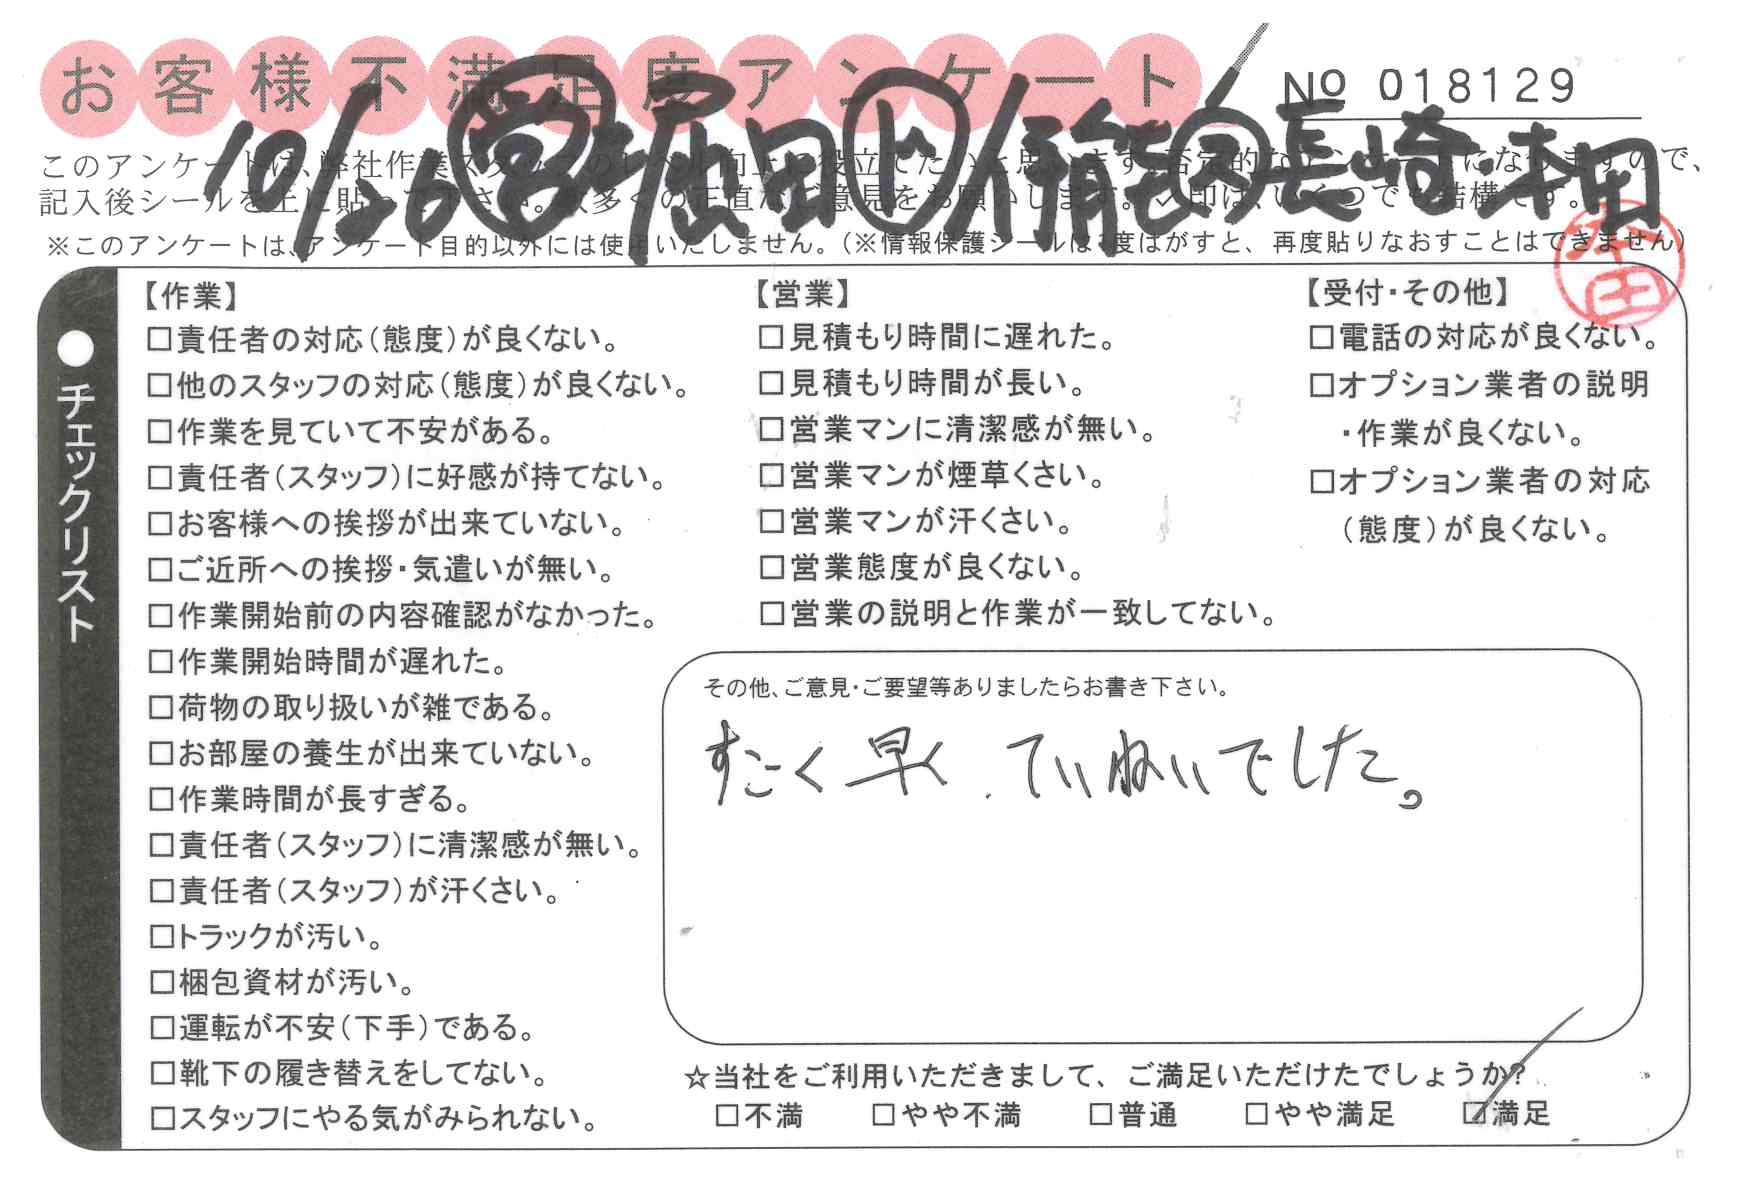 お客様不満足度アンケート
No 018129
10/20 営 堀田 長崎・本田
このアンケートは、弊社作業スタッフのレベル向上に役立てたいと思います。否定的なアンケートになりますので、
記入後シールを上に貼って下さい。数多くの正直なご意見をお願いします。✓印は、いくつでも結構です。
※このアンケートは、アンケート目的以外には使用いたしません。(※情報保護シールは1度はがすと、再度貼りなおすことはできません)
本田
●チェックリスト
【作業】
□責任者の対応(態度)が良くない。
□他のスタッフの対応(態度)が良くない。
□作業を見ていて不安がある。
□責任者(スタッフ)に好感が持てない。
□お客様への挨拶が出来ていない。
□ご近所への挨拶・気遣いが無い。
□作業開始前の内容確認がなかった。
□作業開始時間が遅れた。
□荷物の取り扱いが雑である。
□お部屋の養生が出来ていない。
□作業時間が長すぎる。
□責任者(スタッフ)に清潔感が無い。
□責任者(スタッフ)が汗くさい。
□トラックが汚い。
□梱包資材が汚い。
□運転が不安(下手)である。
□靴下の履き替えをしてない。
□スタッフにやる気がみられない。
【営業】
□見積もり時間に遅れた。
□見積もり時間が長い。
□営業マンに清潔感が無い。
□営業マンが煙草くさい。
□営業マンが汗くさい。
□営業態度が良くない。
□営業の説明と作業が一致してない。
【受付・その他】
□電話の対応が良くない。
□オプション業者の説明
・作業が良くない。
□オプション業者の対応
(態度)が良くない。
その他、ご意見・ご要望等ありましたらお書き下さい。
すごく早く、ていねいでした。
☆当社をご利用いただきまして、ご満足いただけたでしょうか?
□不満 □やや不満 □普通 □やや満足 ☑満足